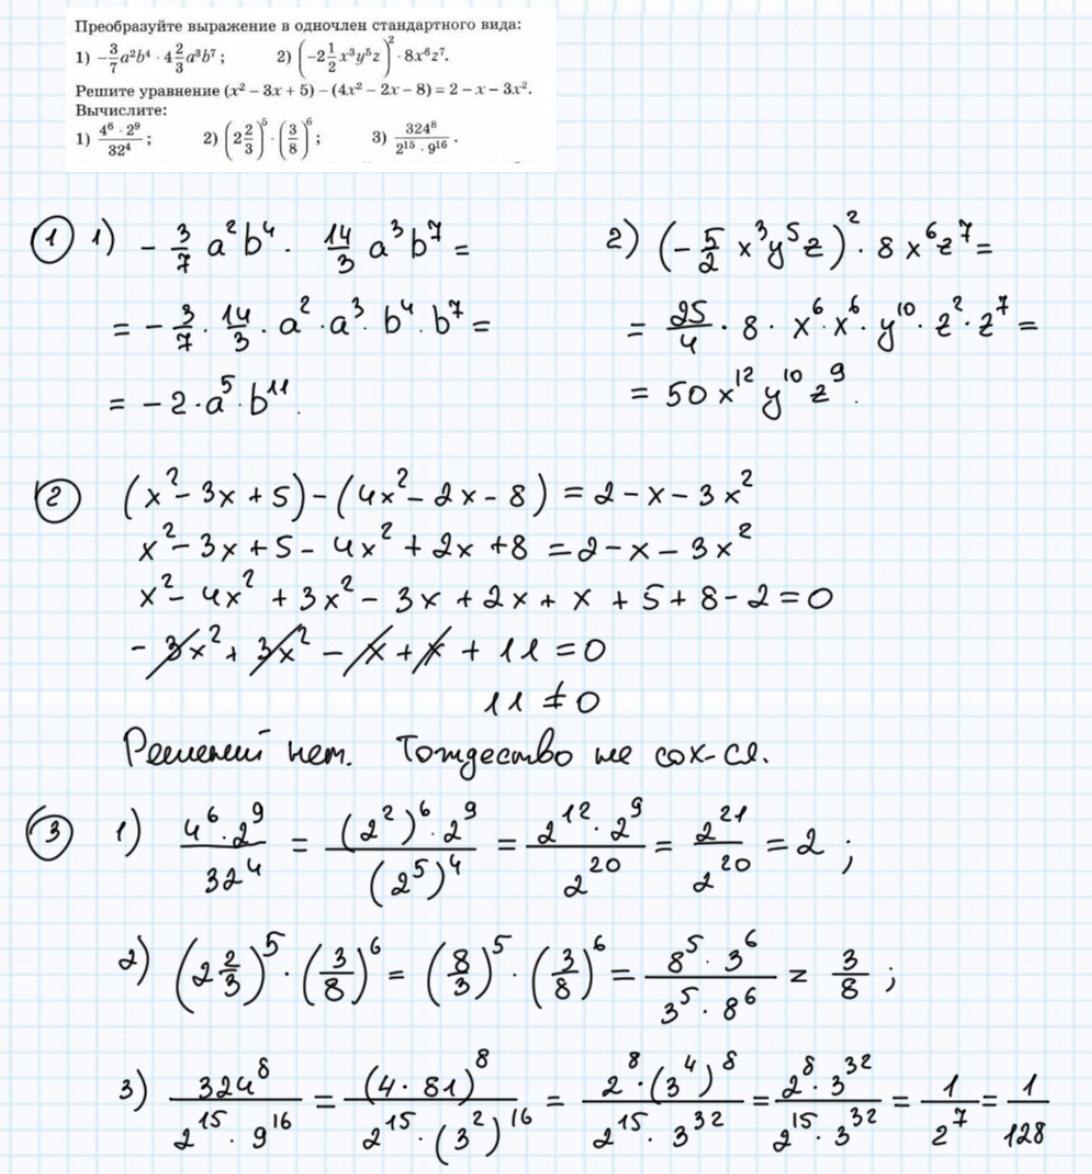 Преобразуйте выражение в одночлен стандартного вида:
1) −3/7 a²b⁴ · 4 2/3 a³b⁷; 2) (−2 1/2 x³y⁵z)² · 8x⁶z⁷.
Решите уравнение (x² − 3x + 5) − (4x² − 2x − 8) = 2 − x − 3x².
Вычислите:
1) (4⁶ · 2⁹)/32⁴; 2) (2 2/3)⁵ · (3/8)⁶; 3) 324⁸/(2¹⁵ · 9¹⁶).
① 1) − 3/7 a²b⁴ · 14/3 a³b⁷ = 2) (− 5/2 x³y⁵z)² · 8x⁶z⁷ =
= − 3/7 · 14/3 · a² · a³ · b⁴ · b⁷ = = 25/4 · 8 · x⁶ · x⁶ · y¹⁰ · z² · z⁷ =
= − 2 · a⁵ · b¹¹. = 50 x¹² y¹⁰ z⁹.
② (x² − 3x + 5) − (4x² − 2x − 8) = 2 − x − 3x²
x² − 3x + 5 − 4x² + 2x + 8 = 2 − x − 3x²
x² − 4x² + 3x² − 3x + 2x + x + 5 + 8 − 2 = 0
− 3x² + 3x² − x + x + 11 = 0
11 ≠ 0
Решений нет. Тождество не сох-ся.
③ 1) (4⁶ · 2⁹)/32⁴ = ((2²)⁶ · 2⁹)/(2⁵)⁴ = (2¹² · 2⁹)/2²⁰ = 2²¹/2²⁰ = 2 ;
2) (2 2/3)⁵ · (3/8)⁶ = (8/3)⁵ · (3/8)⁶ = (8⁵ · 3⁶)/(3⁵ · 8⁶) = 3/8 ;
3) 324⁸/(2¹⁵ · 9¹⁶) = (4 · 81)⁸/(2¹⁵ · (3²)¹⁶) = (2⁸ · (3⁴)⁸)/(2¹⁵ · 3³²) = (2⁸ · 3³²)/(2¹⁵ · 3³²) = 1/2⁷ = 1/128